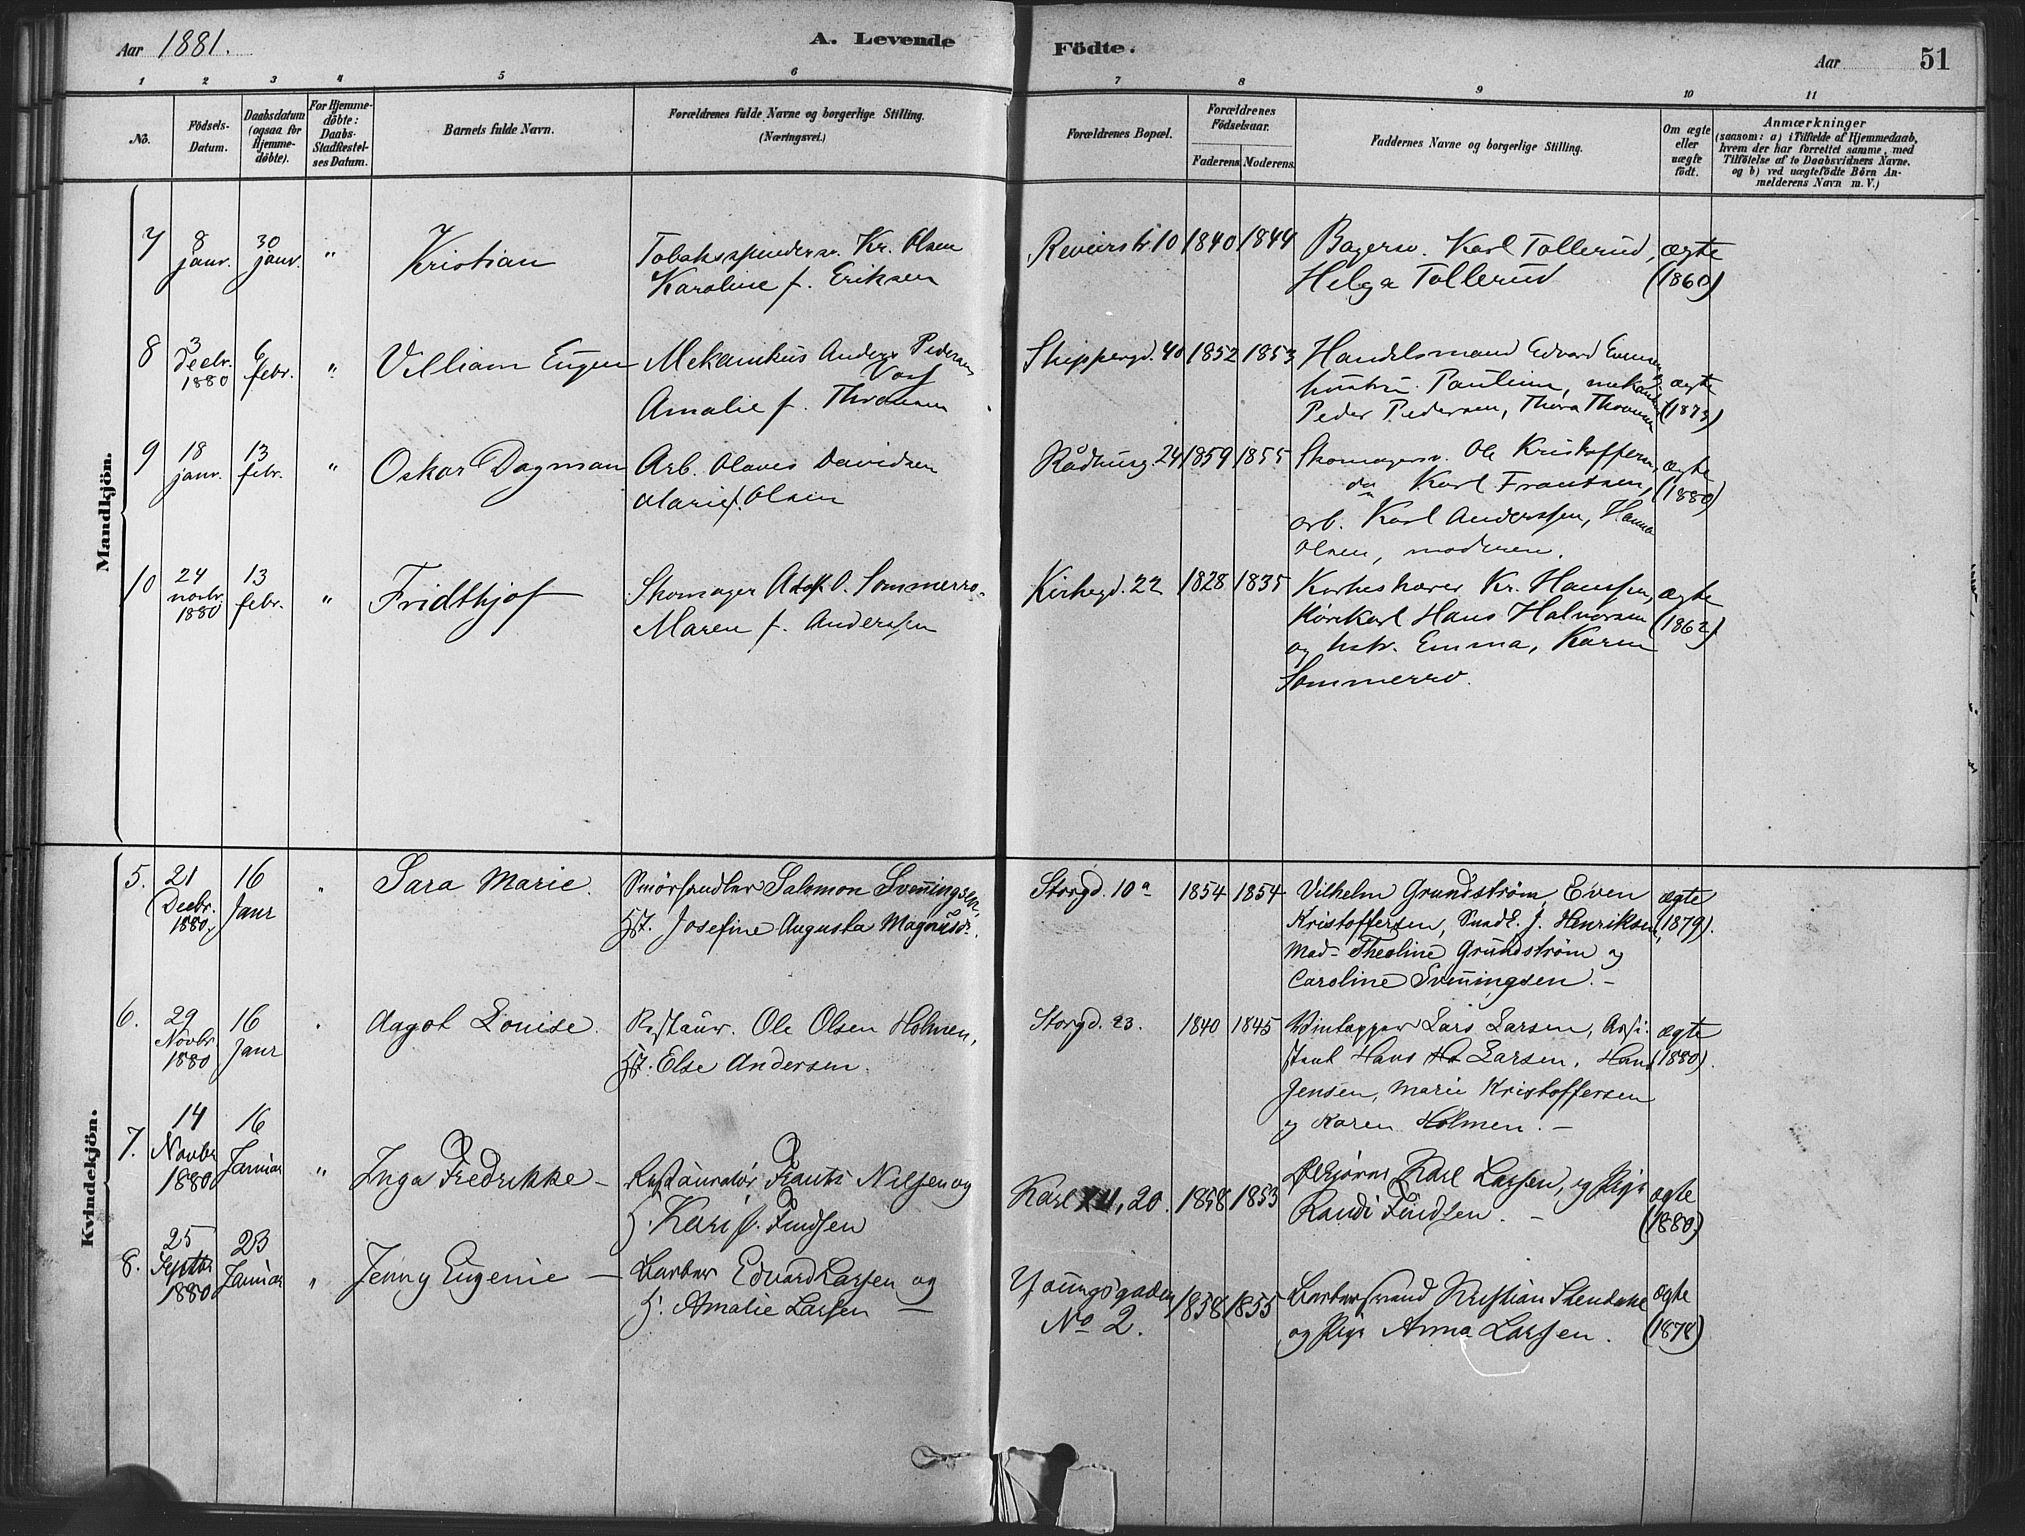 Aar 1881.
A. Levende Födte.
Aar
51
1 2 3 4 5 6 7 8 9 10 11
No.
Födsels-Datum.
Daabsdatum (ogsaa for Hjemme-döbte).
For Hjemme-döbte: Daabs-Stadfæstel-ses Datum.
Barnets fulde Navn.
Forældrenes fulde Navne og borgerlige Stilling.
(Næringsvei.)
Forældrenes Bopæl.
Forældrenes Födselsaar.
Faderens Moderens
Faddernes Navne og borgerlige Stilling.
Om ægte eller uægte födt.
Anmærkninger
(saasom: a) i Tilfælde af Hjemmedaab,
hvem der har forrettet samme, med
Tilföielse af to Daabsvidners Navne.
og b) ved uægtefödte Börn An-
melderens Navn m. V.)
Mandkjön.
7 8 janr. 30 janr. " Kristian
Tobaksspindersv. Kr. Olsen
Karoline f. Eriksen
1840 1844
Bagersv. Karl Tollerud,
Helga Tollerud
ægte (1860)
8 3 Decbr. 1880 6 febr. " Villiam Eugen
Mekanikus Anders Pedersen
Amalie f. Thronsen
Skippergd. 40 1852 1853
Handelsmand Edvard
hustru Pauline,
Peder Pedersen, Thora
ægte (1873)
9 18 janr. 13 febr. " Oskar Dagman
Arb. Olaves Davidsen
Marie f. Olsen
Rådhusg. 24 1859 1855
Skomagersv. Ole Kristoffersen,
do Karl Frantsen,
arb. Karl Anderssen, Hanna
Olsen, moderen.
ægte (1880)
10 24 novbr. 1880 13 febr. " Fridthjof
Skomager Adolf O. Sommerro.
Maren f. Anderssen
Kirkegd. 22 1828 1835
Korkeskærer Kr. Hanssen,
Kørekarl Hans Halvorsen
og hstr. Emma, Karen
Sommerro.
ægte (1862)
Kvindekjön.
5. 21 Decbr. 1880. 16 Janr " Sara Marie.
Smörhandler Salomon Svenningsen,
H. Josefine Augusta Magnusdr.
Storgd. 10a 1854 1854
Vilhelm Grundstrøm, Even
Kristoffersen, J. Henriksen,
Mad- Theoline Grundstrøm og
Caroline Svenningsen. -
ægte (1879).
6. 29 Novbr 1880 16 Janr " Aagot Louise.
Restaur. Ole Olsen Holmen,
H. Else Andersen.
Storgd. 23. 1840 1845
Vintapper Lars Larsen, Assi-
stent Hans Larsen, Hans
Jensen, Marie Kristoffersen
og Karen Holmen. -
ægte (1880).
7. 14 Novbr 1880 16 Januar " Inga Fredrikke -
Restauratør Frants Nilsen og
H. Kari f. Findsen
Karl XII, 20. 1858 1853
Ølkjører Karl Larsen, og Pige
Randi Findsen. -
ægte (1880)
8. 25 Septbr 1880 23 Januar " Jenny Eugenie -
Barber Edvard Larsen og
H. Amalie Larsen -
Youngsgaden No 2. 1858 1855
Barbersvend Kristian
og Pige Anna Larsen.
ægte (1878)